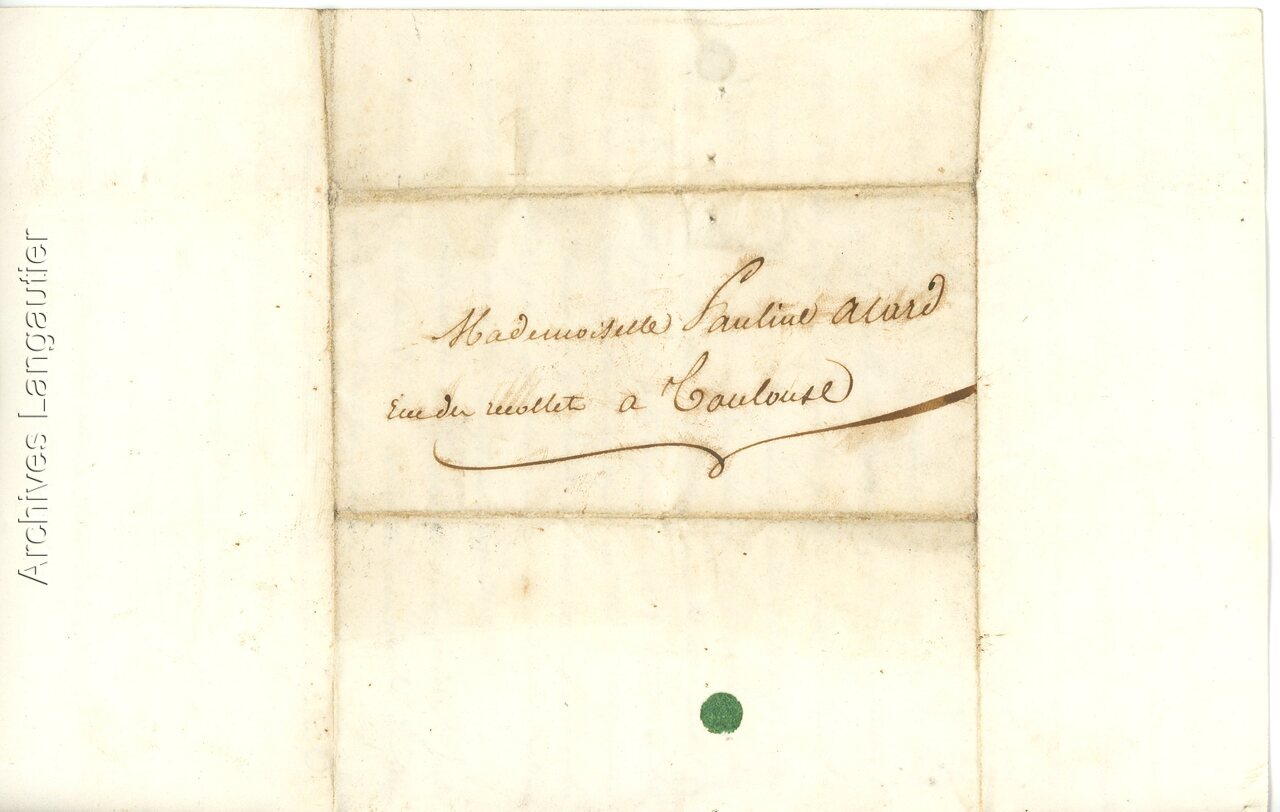 Mademoiselle Pauline alard
rue des recollet a Toulouse
Archives Langautier